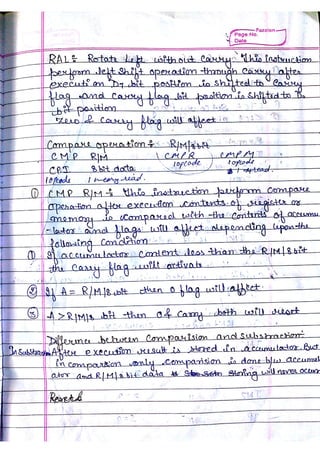 Page No.
Date
RAL :- Rotate left without carry This instruction
perform left shift operation through carry after
execution D7 bit position is shifted to carry
flag and carry flag bit position is shifted to
bit position
zero & carry flag will affect
Compare operation :- R/M/8bit
CMP R/M CMP R CMP M
CPI 8bit data 1opcode 1opcode
1opcode 1 memory read.
① CMP R/M :- This instruction perform compare
operation after execution contents of register or
memory is compared with the contents of accumu
-lator and flags will affect depending upon the
following condition
① If accumulator content less than the R/M/8bit
the carry flag will activate
② If A = R/M/8 bit then 0 flag will affect
③ A>R/M/8 bit then 0 & carry both will reset
Difference between Comparision and substraction:
In substraction After execution result is stored in accumulator. But
in comparision only comparision is done b/w accumul
ator and R/M/8 bit data storing will never occur